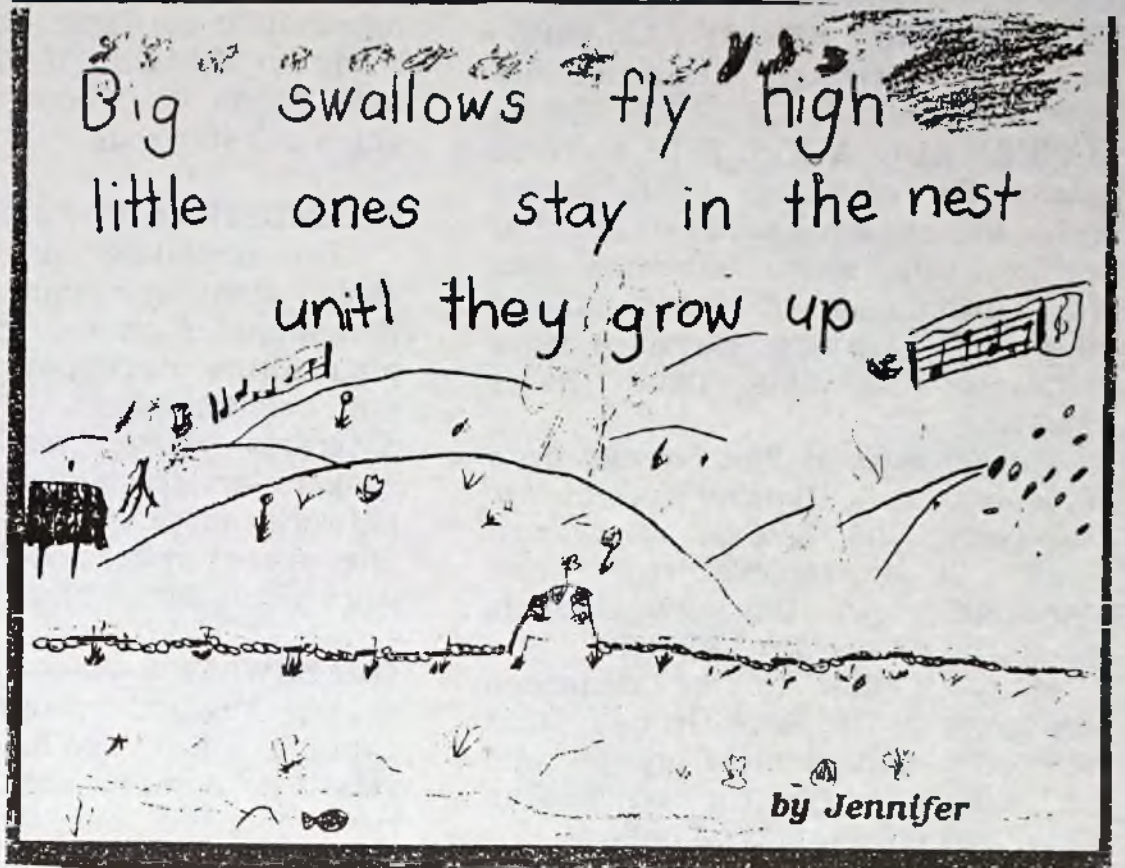 Big swallows fly high
little ones stay in the nest
unitl they grow up
by Jennifer